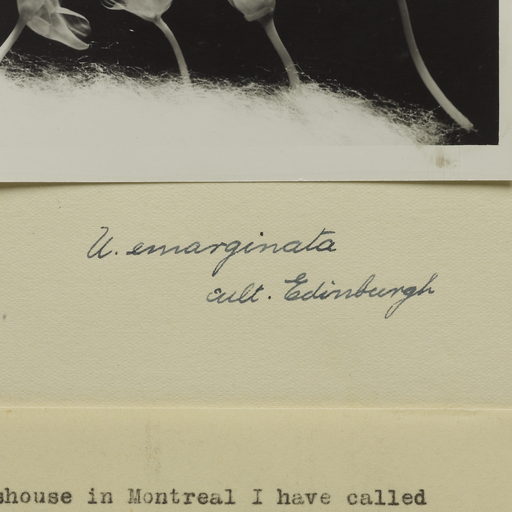 U. emarginata
cult. Edinburgh
shouse in Montreal I have called